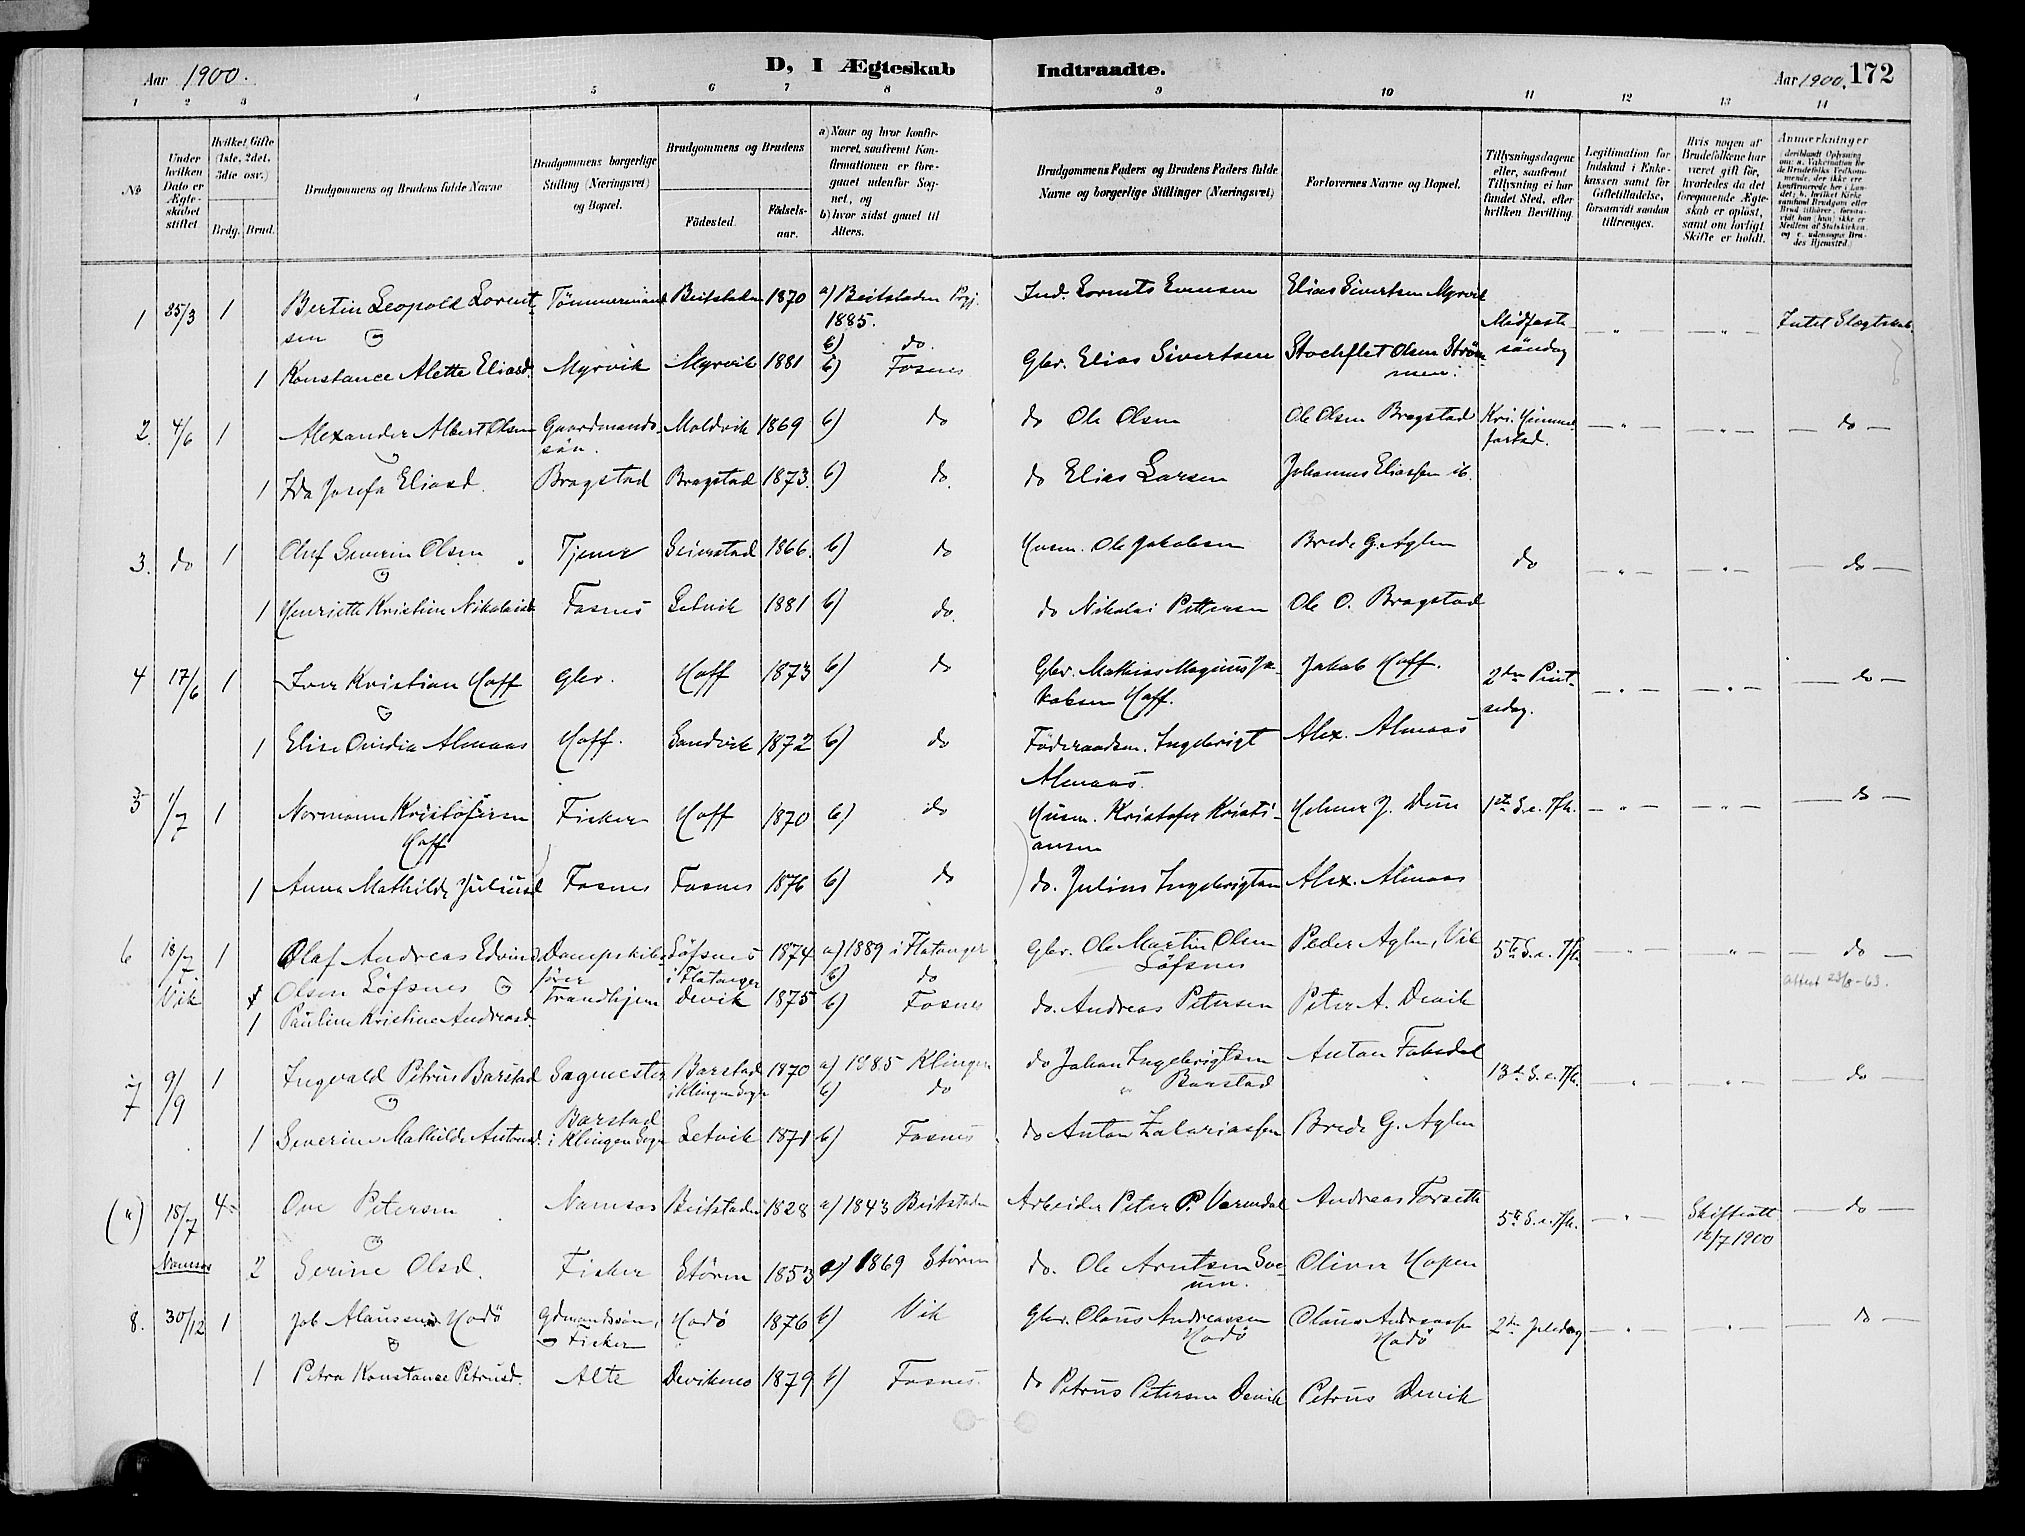 Aar 1900.
D, I Ægteskab Indtraadte.
Aar 1900. 172
1 2 3 4 5 6 7 8 9 10 11 12 13 14
No
Under hvilken Dato er Ægteskabet stiftet
Hvilket Gifte (1ste, 2det, 3die osv.)
Brdg. Brud.
Brudgommens og Brudens fulde Navne
Brudgommens borgerlige Stilling (Næringsvei) og Bopæl.
Brudgommens og Brudens
Födested. Födselsaar.
a) Naar og hvor konfirmeret, saafremt Konfirmationen er foregaaet udenfor Sognet, og
b) hvor sidst gaaet til Alters.
Brudgommens Faders og Brudens Faders fulde Navne og borgerlige Stillinger (Næringsvei)
Forlovernes Navne og Bopæl.
Tillysningsdagene eller, saafremt Tillysning ei har fundet Sted, efter hvilken Bevilling.
Legitimation for Indskud i Enkekassen samt for Giftetilladelse, forsaavidt saadan tiltrænges.
Hvis nogen af Brudefolkene har været gift för, hvorledes da det foregaaende Ægteskab er oplöst, samt om lovligt Skifte er holdt.
Anmærkninger
1 25/3 1 Bertin Leopold Lorentsen Tömmermand Beitstaden 1870 a) Beitstaden Pgj. 1885. b) do. Ind. Lorents Evensen Elias Sivertsen Myrvik Midfastesöndag — " — — " — Intet Slægtskab
1 Konstance Alette Eliasd. Myrvik Myrvik 1881 b) Fosnes Gbr. Elias Sivertsen Stochflet Olsen Strömmen.
2. 4/6 1 Alexander Albert Olsen Gaardmandssön. Moldvik 1869 b) do do Ole Olsen Ole Olsen Bragstad Kri. Himmelfartsd. — " — — " — — do —
1 Ida Josefa Eliasd. Bragstad Bragstad 1873. b) do. do Elias Larsen Johannes Eliassen ib.
3. do 1 Oluf Severin Olsen Tjener Seierstad 1866. b) do Husm. Ole Jakobsen Brede G. Aglen do — " — — " — — do —
1 Henriette Kristine Nikolaisd. Fosnes Setvik 1881 b) do. do Nikolai Pettersen Ole O. Bragstad
4 17/6 1 Iver Kristian Hoff Gbr. Hoff 1873 b) do Gbr. Mathias Magnus Jakobsen Hoff. Jakob Hoff. 2den Pintsedag. — " — — " — — do —
1 Elise Ovidia Almaas Hoff. Sandvik 1872 b) do Föderaadsm. Ingebrigt Almaas. Alex. Almaas
5 1/7 1 Normann Kristofersen Hoff Fisker Hoff 1870 b) do Husm. Kristofer Kristiansen Helmer J. Duun 1ste S. e. Tfh. — " — — " — — do —
1 Anna Mathilde Juliusd Fosnes Fosnes 1876 b) do do. Julius Ingebrigtsen Alex. Almaas
6 18/7 Vik 1 Olaf Andreas Edvind Olsen Löfsnes Dampskibsförer Löfsnes i Flatanger 1874 a) 1889 i Flatanger b) do Gbr. Ole Martin Olsen Löfsnes Peder Aglen, Vik 5te S. e. Tfh. — " — — " — — do —
Attest 23/8-63.
1 Pauline Kristine Andreasd. Trondhjem Devik 1875 b) Fosnes do. Andreas Petersen Peter A. Devik
7 9/9 1 Ingvald Petrus Barstad Sagmester Barstad i Klingen Sogn 1870 a) 1885 Klingen b) do do Johan Ingebrigtsen Barstad Anton Faksdal 13de S. e. Tfh. — " — — " — — do —
1 Severine Mathilde Antonsd. Barstad i Klingen Sogn Setvik 1871 b) Fosnes do Anton Zakariassen Brede G. Aglen
18/7 Namsos 4 Ove Petersen Namsos Beitstaden 1828 a) 1843 Beitstaden Arbeider Peter P. Værendal Andreas Forseth 5te S. e. Tfh. — " — Skifteatt 12/7 1900 — do —
2 Serine Olsd. Fisker Stören 1853 a) 1869 Stören do. Ole Arntsen Oliver Hopen
8. 30/12 1 Job Klaussen Hodö Gdmandssön, Fisker Hodö 1876 b) Vik Gbr. Olaus Andreassen Hodö Olaus Andreassen Hodö 2den Juledag — " — — " — — do —
1 Petra Konstance Petrusd. Alte Devikmo 1879 b) Fosnes. do Petrus Petersen Devik Petrus Devik